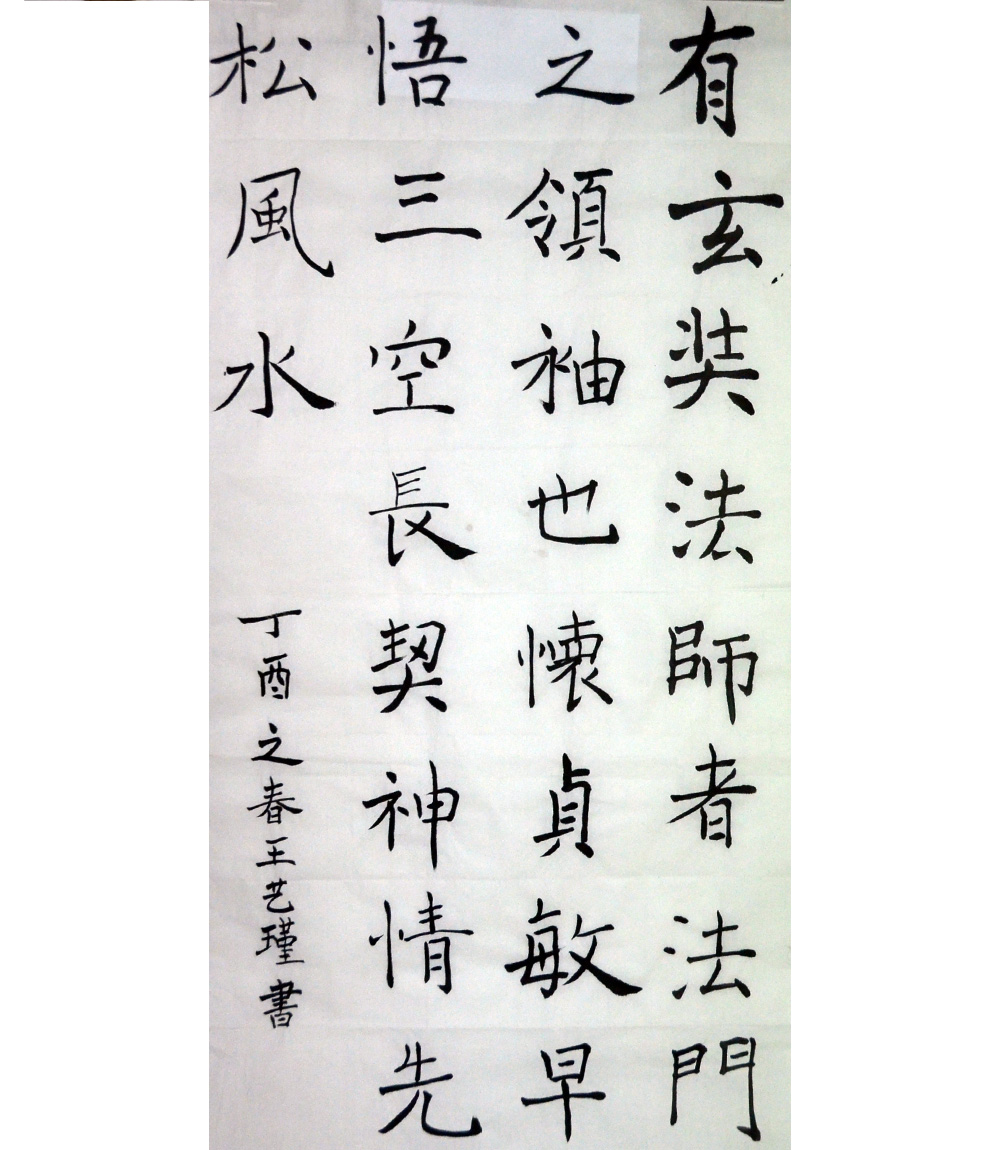 有玄奘法師者法門
之領袖也懷貞敏早
悟三空長契神情先
松風水
丁酉之春王艺瑾書